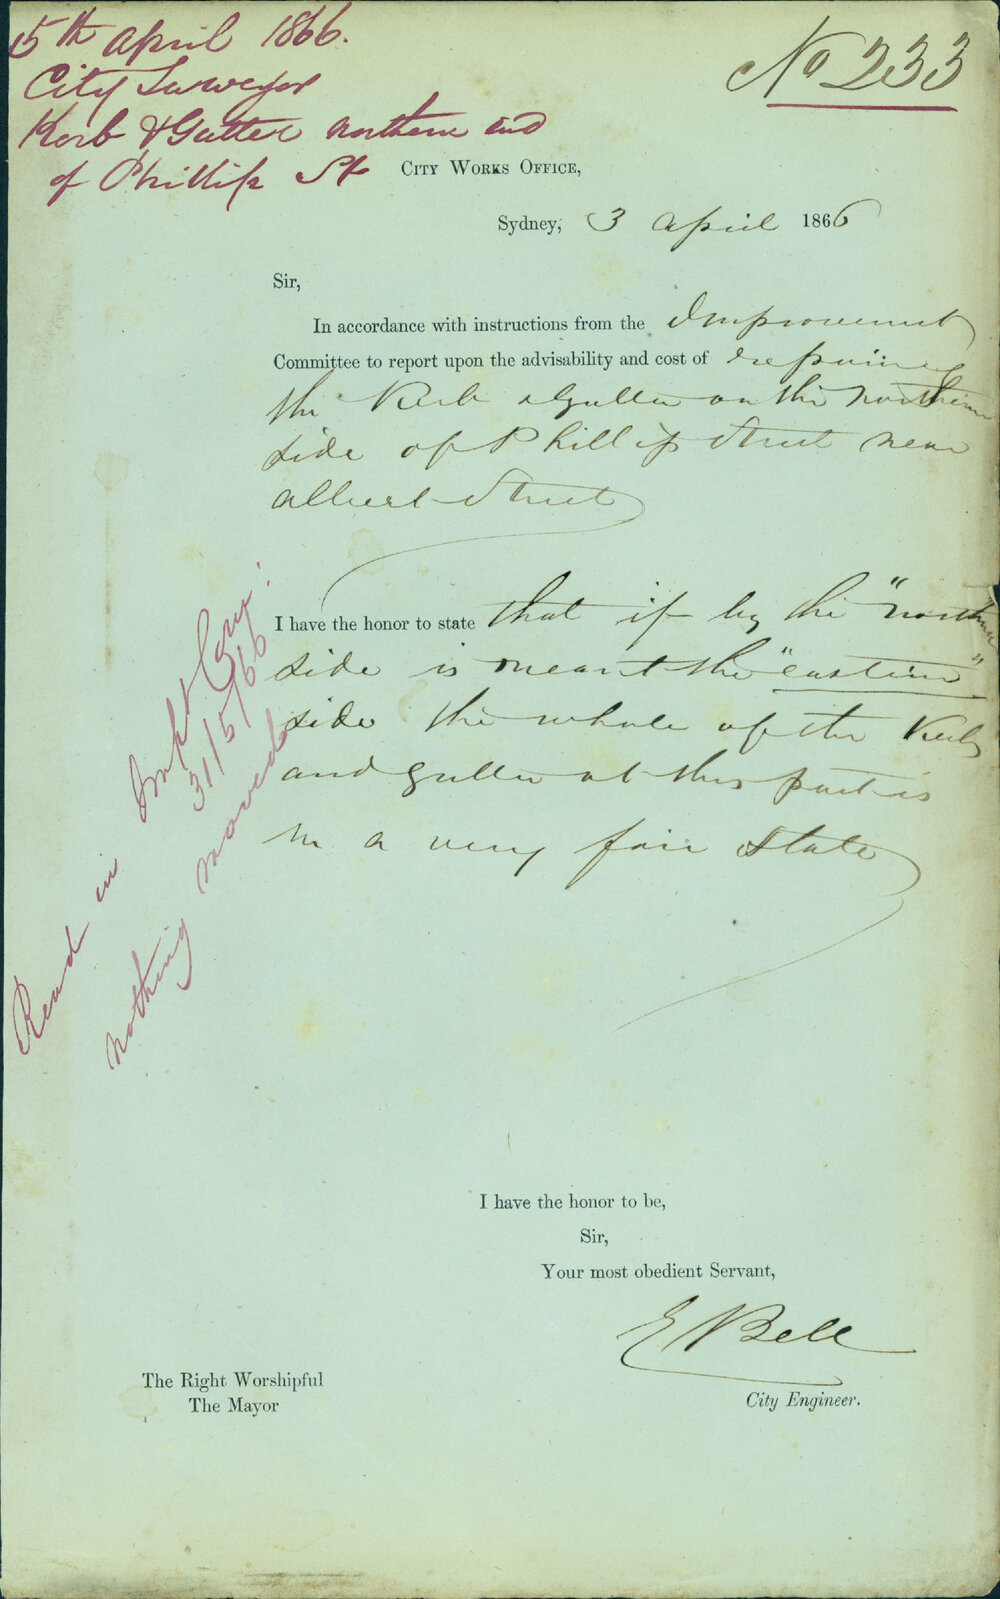 5th April 1866.
City Surveyor
Kerb & Gutter northern end
of Phillip St
No 233
City Works Office,
Sydney, 3 April 1866
Sir,
In accordance with instructions from the Improvement
Committee to report upon the advisability and cost of repairing
the Kerb & Gutter on the northern
side of Phillip Street near
Albert Street
I have the honor to state that if by the "northern
side is meant the "eastern"
side the whole of the Kerb
and gutter at this part is
in a very fair state
Read in Impt Com:
31/5/66
nothing moved
I have the honor to be,
Sir,
Your most obedient Servant,
E Bell
City Engineer.
The Right Worshipful
The Mayor